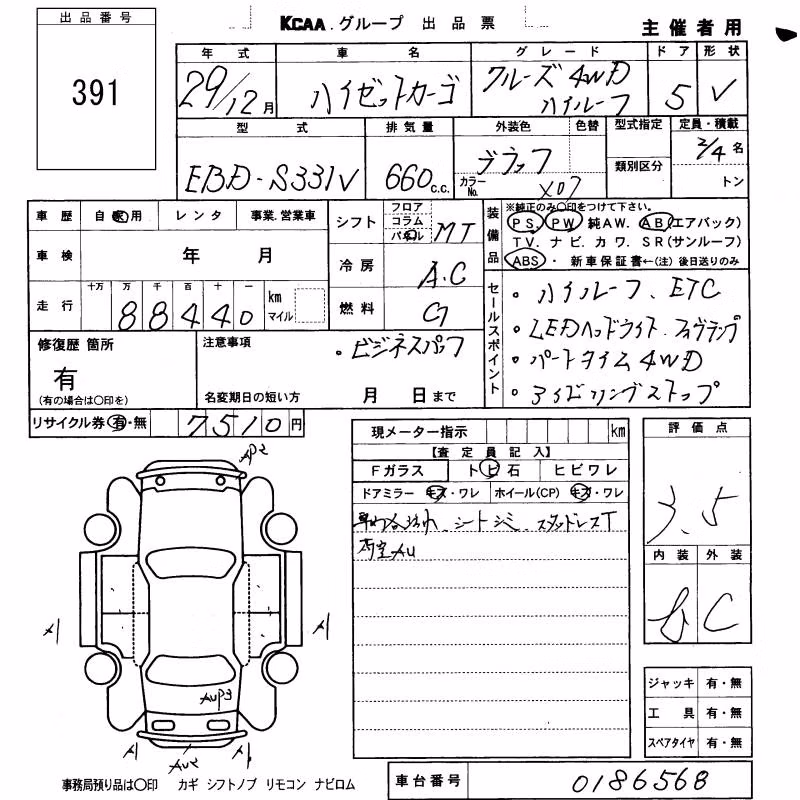 KCAA.グループ 出品票 主催者用
出品番号
391
年式 車名 グレード ドア 形状
29/12月 ハイゼットカーゴ クルーズ4WD ハイルーフ 5 V
型式 排気量 外装色 色替 型式指定 定員・積載
EBD-S331V 660c.c. ブラック 2/4名
カラーNo. X07 類別区分 トン
車歴 自家用 レンタ 事業.営業車
シフト フロア コラム パネル MT
車検 年 月
冷房 A.C
走行 十万 万 千 百 十 一
88440 km マイル
燃料 G
装備品 ※純正のみ〇印をつけて下さい。
PS. PW. 純AW. AB(エアバック)
TV. ナビ. カワ. SR(サンルーフ)
ABS・ 新車保証書←(注) 後日送りのみ
セールスポイント
・ハイルーフ、ETC
・LEDヘッドライト.フォグランプ
・パートタイム4WD
・アイドリングストップ
修復歴 箇所
有
(有の場合は〇印を)
注意事項
・ビジネスパック
名変期日の短い方 月 日まで
リサイクル券 有・無 7510円
現メーター指示 km
【査定員記入】
Fガラス トビ石 ヒビワレ
ドアミラー キズ・ワレ ホイール(CP) キズ・ワレ
シートシミ、スタッドレスT
AU
評価点
3.5
内装 外装
C
ジャッキ 有・無
工具 有・無
スペアタイヤ 有・無
AP2
A1 A1
AUP3
A1 AU2 A1
事務局預り品は〇印 カギ シフトノブ リモコン ナビロム
車台番号 0186568